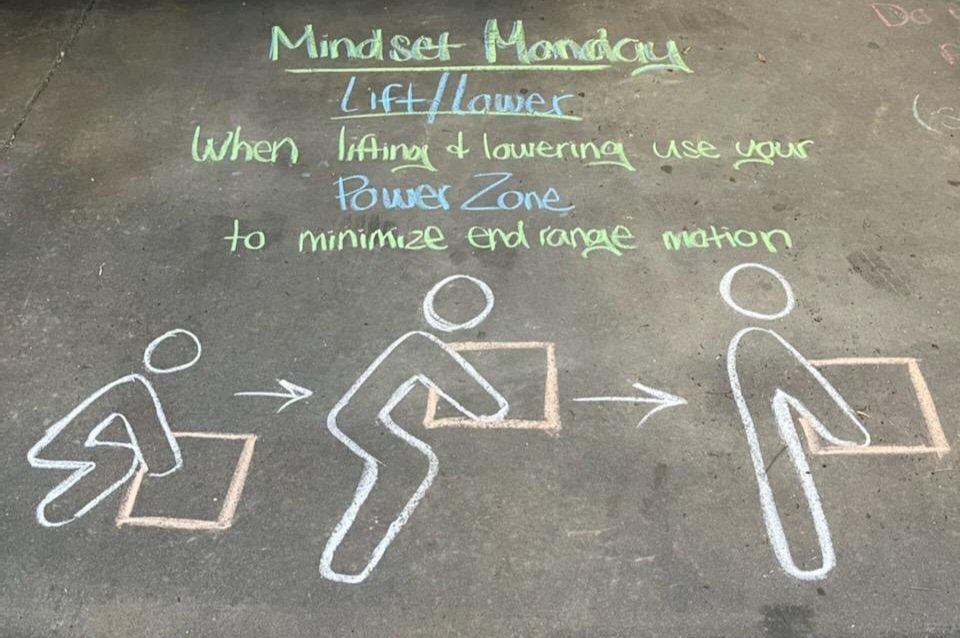 Mindset Monday
Lift/Lower
When lifting & lowering use your
Power Zone
to minimize end range motion
Do